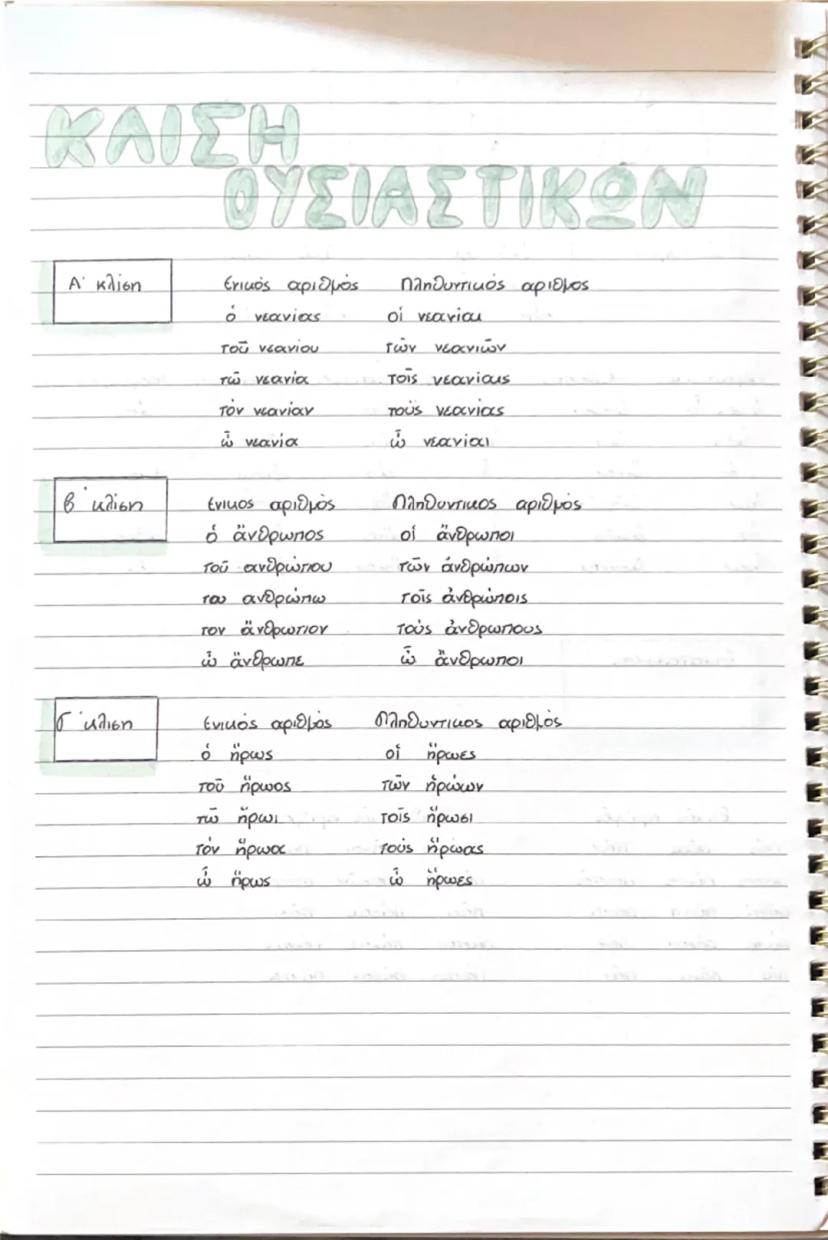 ΚΛΙΣΗ
ΟΥΣΙΑΣΤΙΚΩΝ
Α' κλίση Ενικός αριθμός Πληθυντικός αριθμος
ὁ νεανίας οἱ νεανίαι
τοῦ νεανίου τῶν νεανιῶν
τῶ νεανία τοῖς νεανίαις
τὸν νεανίαν τοὺς νεανίας
ὦ νεανία ὦ νεανίαι
Β' κλίση Ενικος αριθμός Πληθυντικος αριθμός
ὁ ἄνθρωπος οἱ ἄνθρωποι
τοῦ ανθρώπου τῶν ἀνθρώπων
τω ανθρώπω τοῖς ἀνθρώποις
τον ἄνθρωπον τοὺς ἀνθρωπους
ὦ ἄνθρωπε ὦ ἄνθρωποι
Γ' κλιση Ενικός αριθμός Πληθυντικος αριθμός
ὁ ἥρως οἱ ἥρωες
τοῦ ἥρωος τῶν ἡρώων
τῶ ἥρωι τοῖς ἥρωσι
τόν ἥρωα τοὺς ἥρωας
ὦ ἥρως ὦ ἥρωες